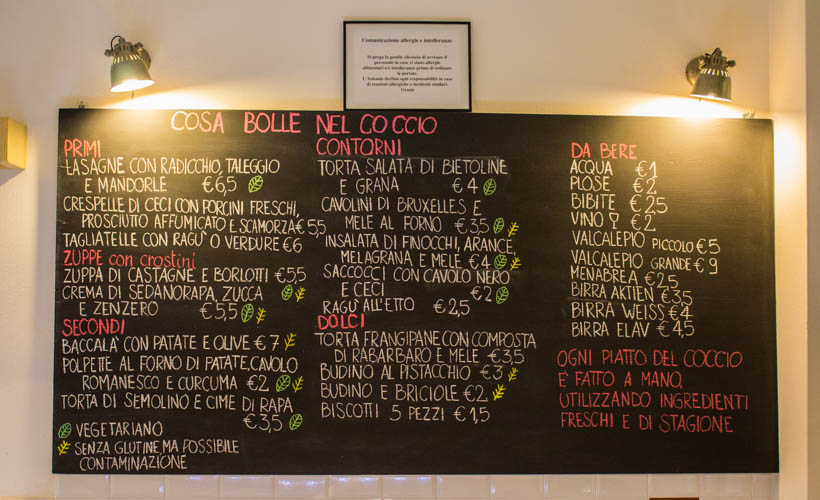 Comunicazione allergie e intolleranze
Si prega la gentile clientela di avvisare il
personale in caso vi siano allergie
alimentari e/o intolleranze prima di ordinare
le portate.
L'Azienda declina ogni responsabilità in caso
di reazioni allergiche o incidenti similari.
Grazie
COSA BOLLE NEL COCCIO
PRIMI
LASAGNE CON RADICCHIO, TALEGGIO
E MANDORLE €6,5
CRESPELLE DI CECI CON PORCINI FRESCHI,
PROSCIUTTO AFFUMICATO E SCAMORZA €5,5
TAGLIATELLE CON RAGU' O VERDURE €6
ZUPPE con crostini
ZUPPA DI CASTAGNE E BORLOTTI €5,5
CREMA DI SEDANORAPA, ZUCCA
E ZENZERO €5,5
SECONDI
BACCALÀ CON PATATE E OLIVE €7
POLPETTE AL FORNO DI PATATE, CAVOLO
ROMANESCO E CURCUMA €2
TORTA DI SEMOLINO E CIME DI RAPA
€3,5
VEGETARIANO
SENZA GLUTINE, MA POSSIBILE
CONTAMINAZIONE
CONTORNI
TORTA SALATA DI BIETOLINE
E GRANA €4
CAVOLINI DI BRUXELLES E
MELE AL FORNO €3,5
INSALATA DI FINOCCHI, ARANCE,
MELAGRANA E MELE €4
SACCOCCI CON CAVOLO NERO
E CECI €2
RAGÙ ALL'ETTO €2,5
DOLCI
TORTA FRANGIPANE CON COMPOSTA
DI RABARBARO E MELE €3,5
BUDINO AL PISTACCHIO €3
BUDINO E BRICIOLE €2
BISCOTTI 5 PEZZI €1,5
DA BERE
ACQUA €1
PLOSE €2
BIBITE €2,5
VINO €2
VALCALEPIO PICCOLO €5
VALCALEPIO GRANDE €9
MENABREA €2,5
BIRRA AKTIEN €3,5
BIRRA WEISS €4
BIRRA ELAV €4,5
OGNI PIATTO DEL COCCIO
E' FATTO A MANO,
UTILIZZANDO INGREDIENTI
FRESCHI E DI STAGIONE